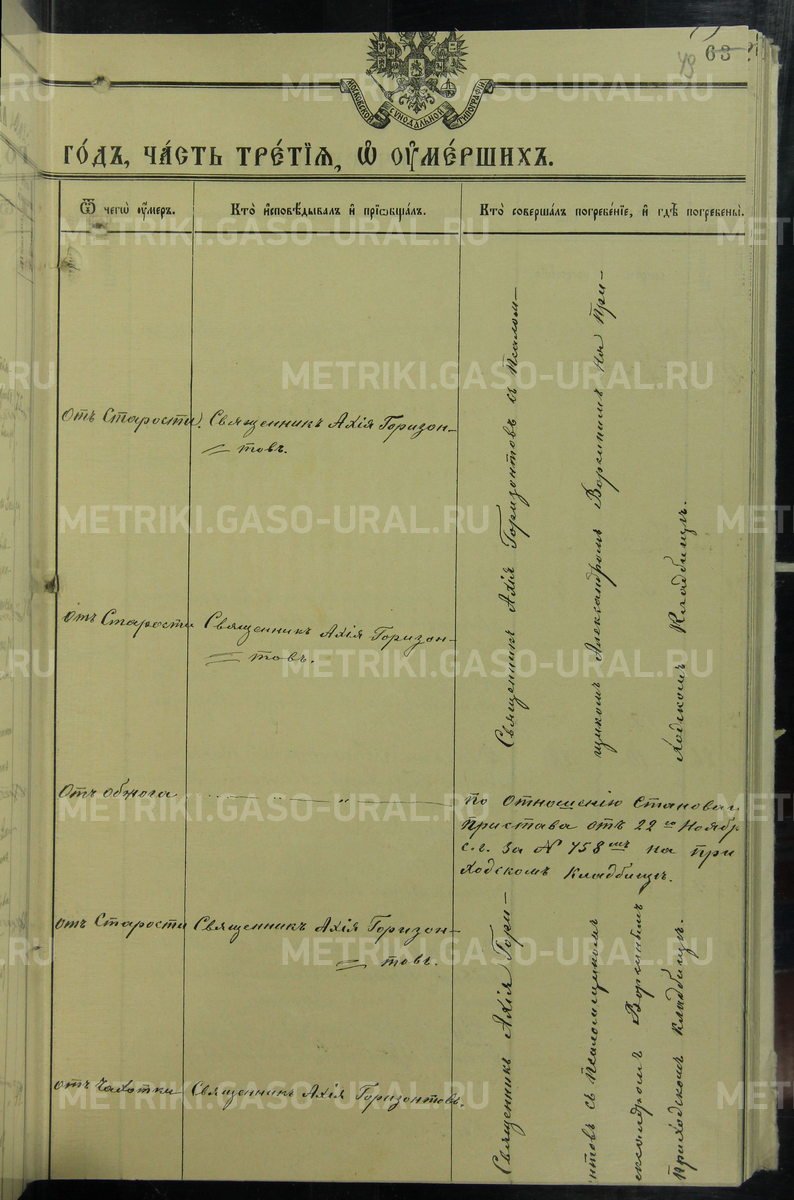 63
49
МОСКОВСКОЙ СѴНОДАЛЬНОЙ ТИПОГРАФІИ
ГО́ДЪ, ЧА́СТЬ ТРЕ́ТІѦ, Ѽ ОУ҆МЕ́РШИХЪ.
Ѿ чегѡ̀ оу҆́меръ.
Кто̀ и҆сповѣ́дывалъ и҆ прїѡбща́лъ.
Кто̀ соверша́лъ погребе́нїе, и҆ гдѣ̀ погребены̀.
отъ Старости.
Священникъ Ахія Горизон-
товъ.
Священникъ Ахія Горизонтовъ съ Псалом-
щикомъ Александромъ на При-
ходскомъ Кладбищѣ.
отъ Старости
Священникъ Ахія Горизон-
товъ.
Отъ обжога
"
по Отношенію Станова
Пристава отъ 22го Ноябр
с.г. за № 758мъ на при
ходскомъ Кладбищѣ.
отъ Старости
Священникъ Ахія Горизон-
товъ.
Священникъ Ахія Гори-
нтовъ съ Псаломщикомъ
ександромъ
Приходскомъ кладбищѣ.
отъ чахотки
Священникъ Ахія Горизонтовъ.
METRIKI.GASO-URAL.RU